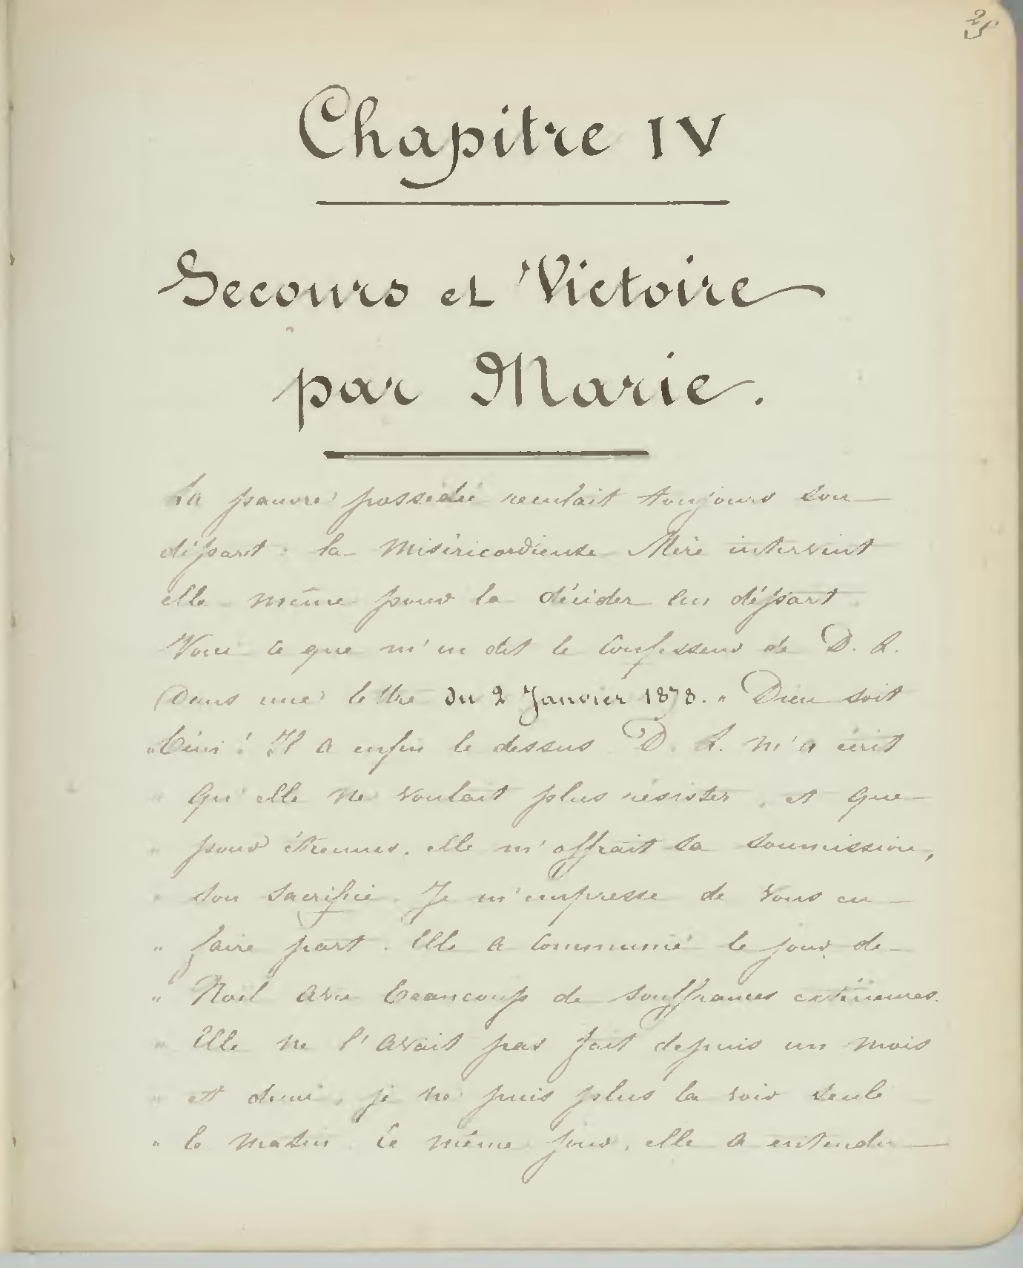 25
Chapitre IV
Secours et Victoire
par Marie.
La pauvre possédée reculait toujours son
départ : la Miséricordieuse Mère intervint
elle-même pour la décider au départ.
Voici ce que m'en dit le Confesseur de D. L.
Dans une lettre du 2 Janvier 1878. " Dieu soit
"béni ! Il a enfin le dessus. D. L. m'a écrit
" qu'elle ne voulait plus résister, et que
" pour étrennes, elle m'offrait sa soumission,
" son sacrifice. Je m'empresse de vous en
" faire part. Elle a communié le jour de
" Noël avec beaucoup de souffrances extérieures.
" Elle ne l'avait pas fait depuis un mois
" et demi, je ne puis plus la voir seule
" le matin. Ce même jour, elle a entendu